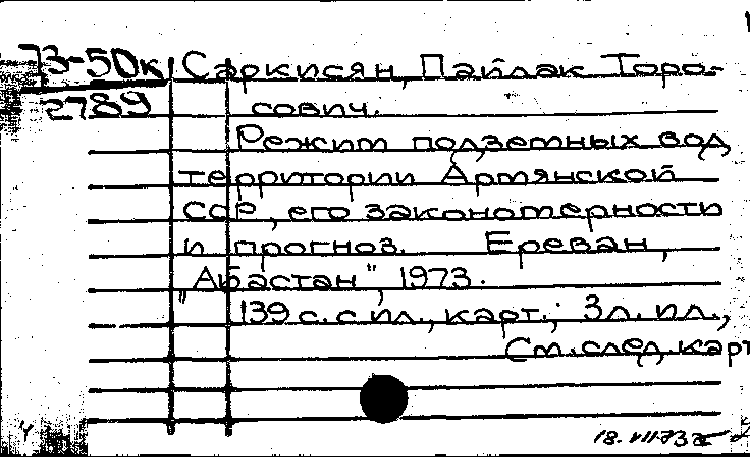 73-50к Саркисян, Пайлак Торо-
2789 сович.
Режим подземных вод
территории Армянской
ССР, его закономерности
и прогноз. Ереван,
"Айастан", 1973.
139 с. с ил., карт.; 3 л. ил.,
См. след. карт
18.VII-73